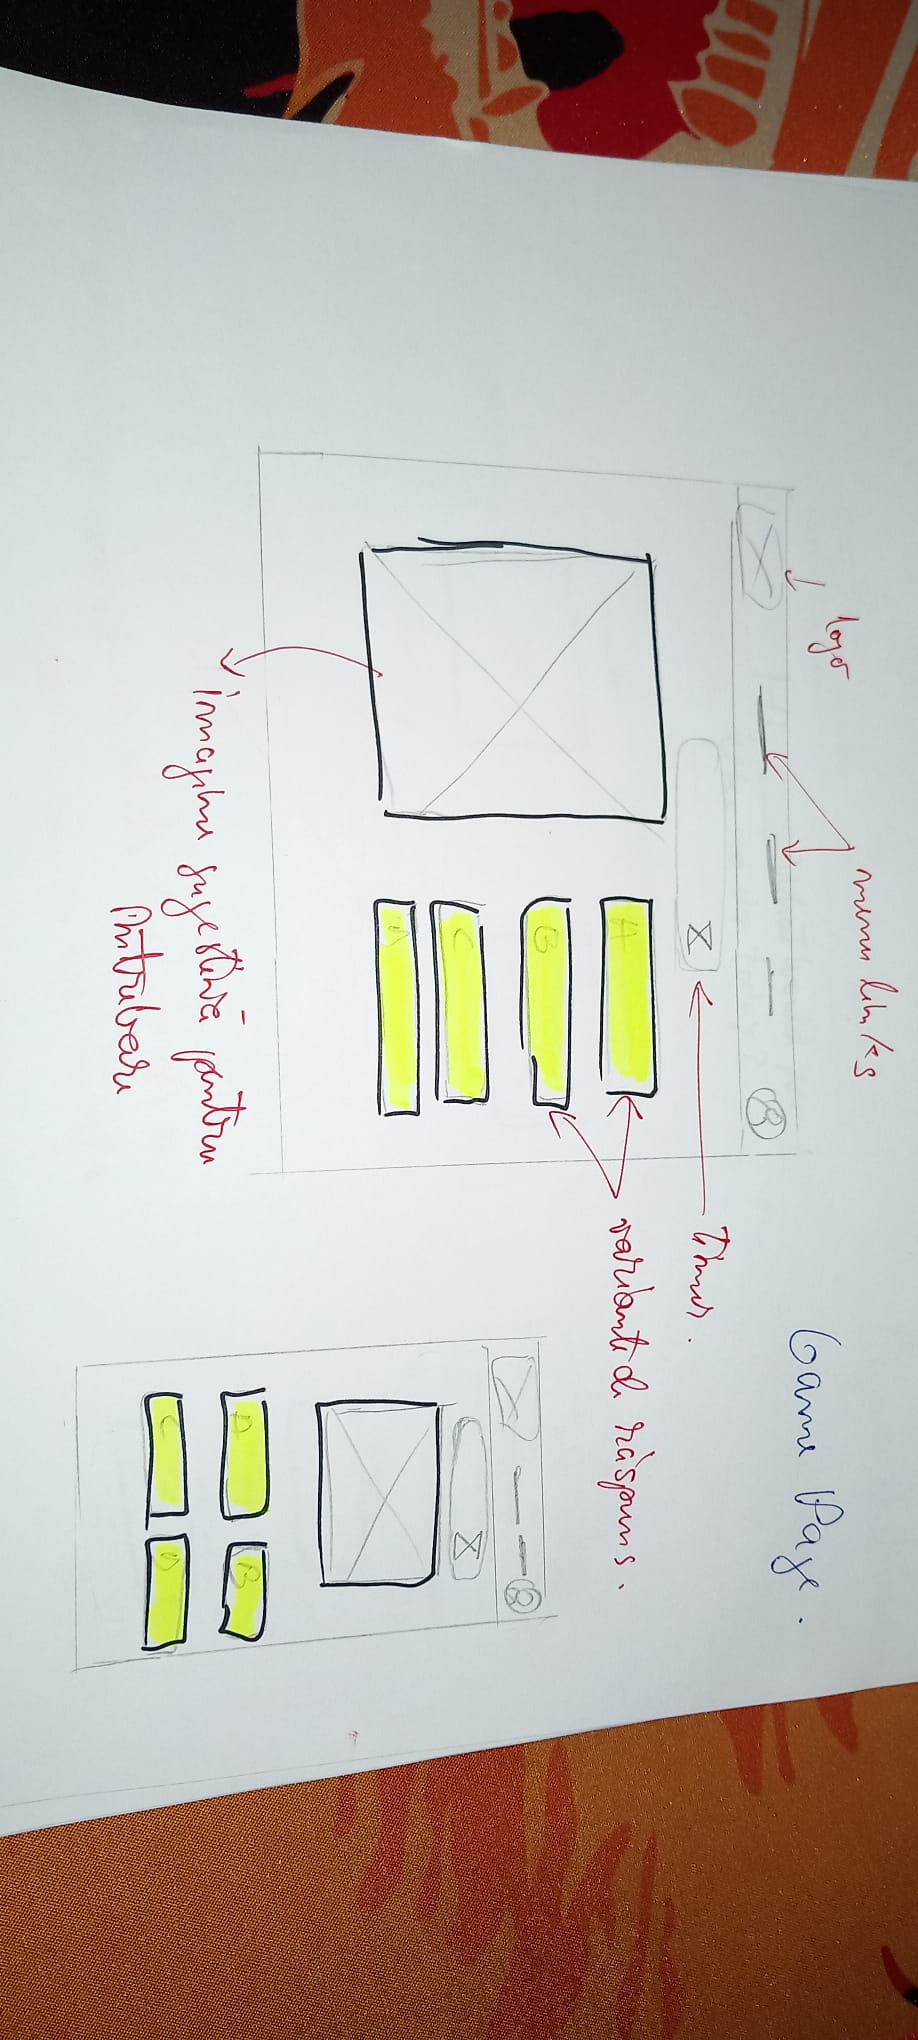 Game Page.
logo
menu links
timer.
A
B
C
D
variante de răspuns.
imagine sugestivă pentru
întrebare
A
B
C
D